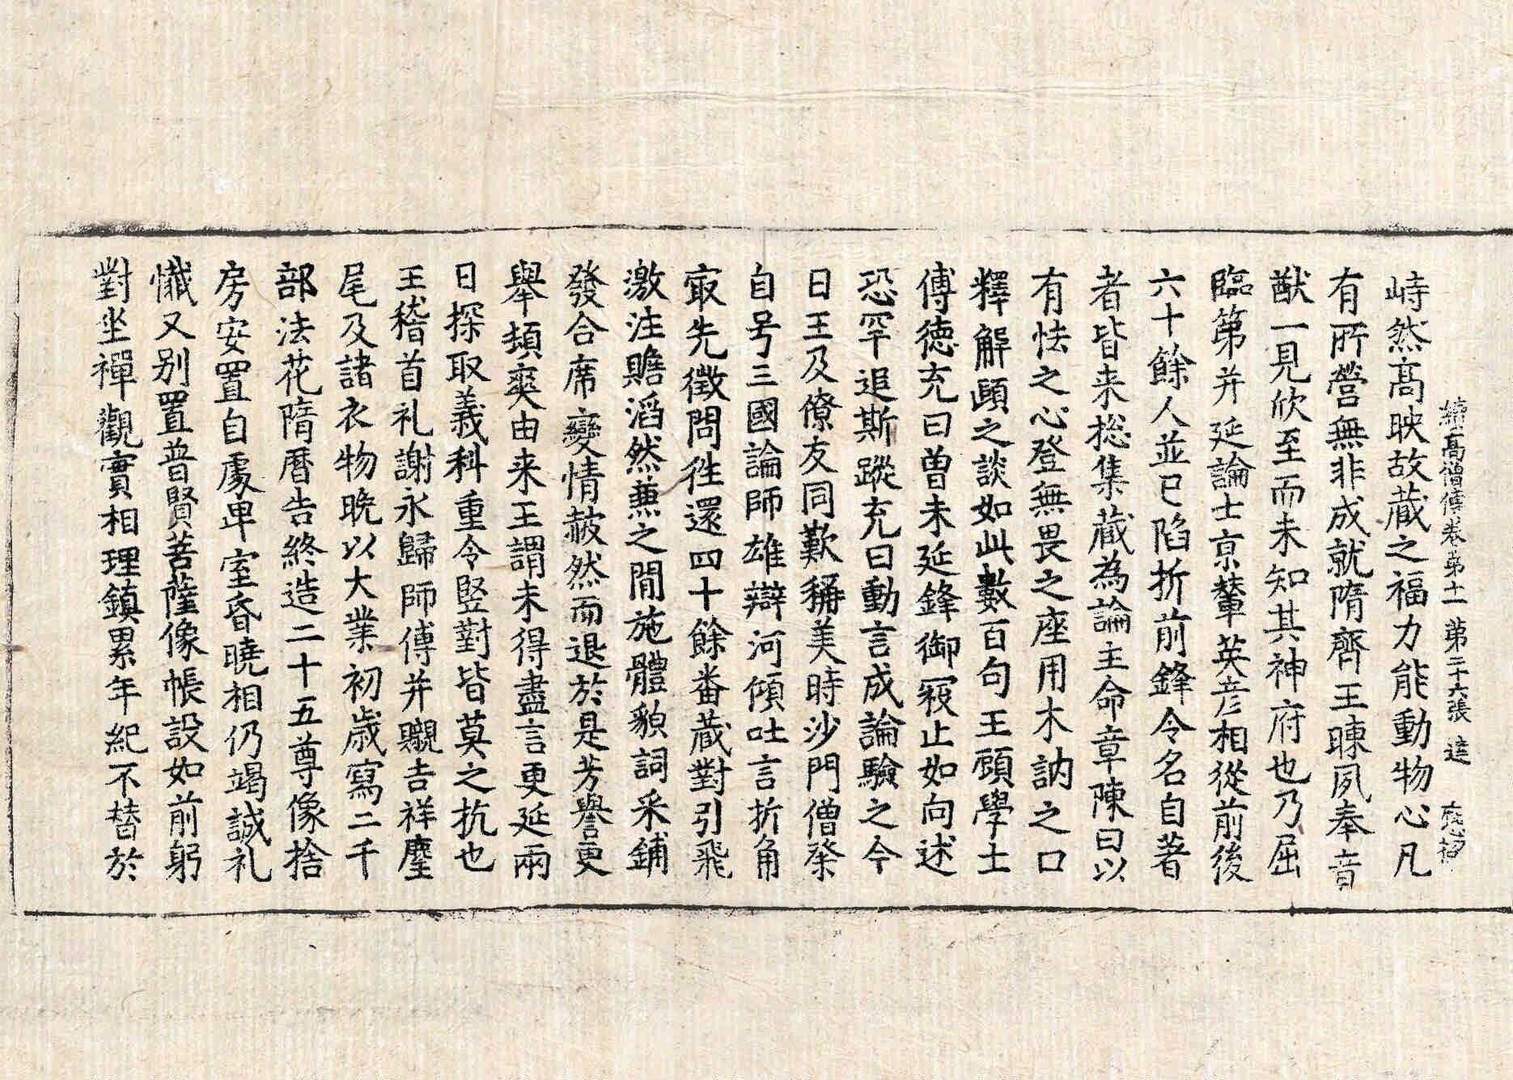 續高僧傳卷第十一 第二十六張 達
峙然高映故蔵之福力能動物心凡
有所營無非成就隋齊王暕夙奉音
猷一見欣至而未知其神府也乃屈
臨第并延論士京輦英彦相從前後
六十餘人並已陷折前鋒令名自著
者皆来揔集蔵為論主命章陳曰以
有怯之心登無畏之座用木訥之口
釋解頤之談如此數百句王顧學士
傅德充曰曽未延鋒御寇止如向述
恐罕追斯蹤充曰動言成論驗之今
日王及僚友同歎稱美時沙門僧粲
自号三國論師雄辯河傾吐言折角
冣先徵問徃還四十餘番蔵對引飛
激注贍滔然兼之間施體貌詞釆鋪
發合席變情赧然而退於是芳譽更
舉頻爽由来王謂未得盡言更延兩
日探取義科重令竪對皆莫之抗也
王稽首礼謝永歸師傅并嚫吉祥麈
尾及諸衣物晩以大業初歳寫二千
部法花隋曆告終造二十五尊像捨
房安置自處卑室昏曉相仍竭誠礼
懺又别置普賢菩薩像帳設如前躬
對坐禪觀實相理鎮累年紀不替於